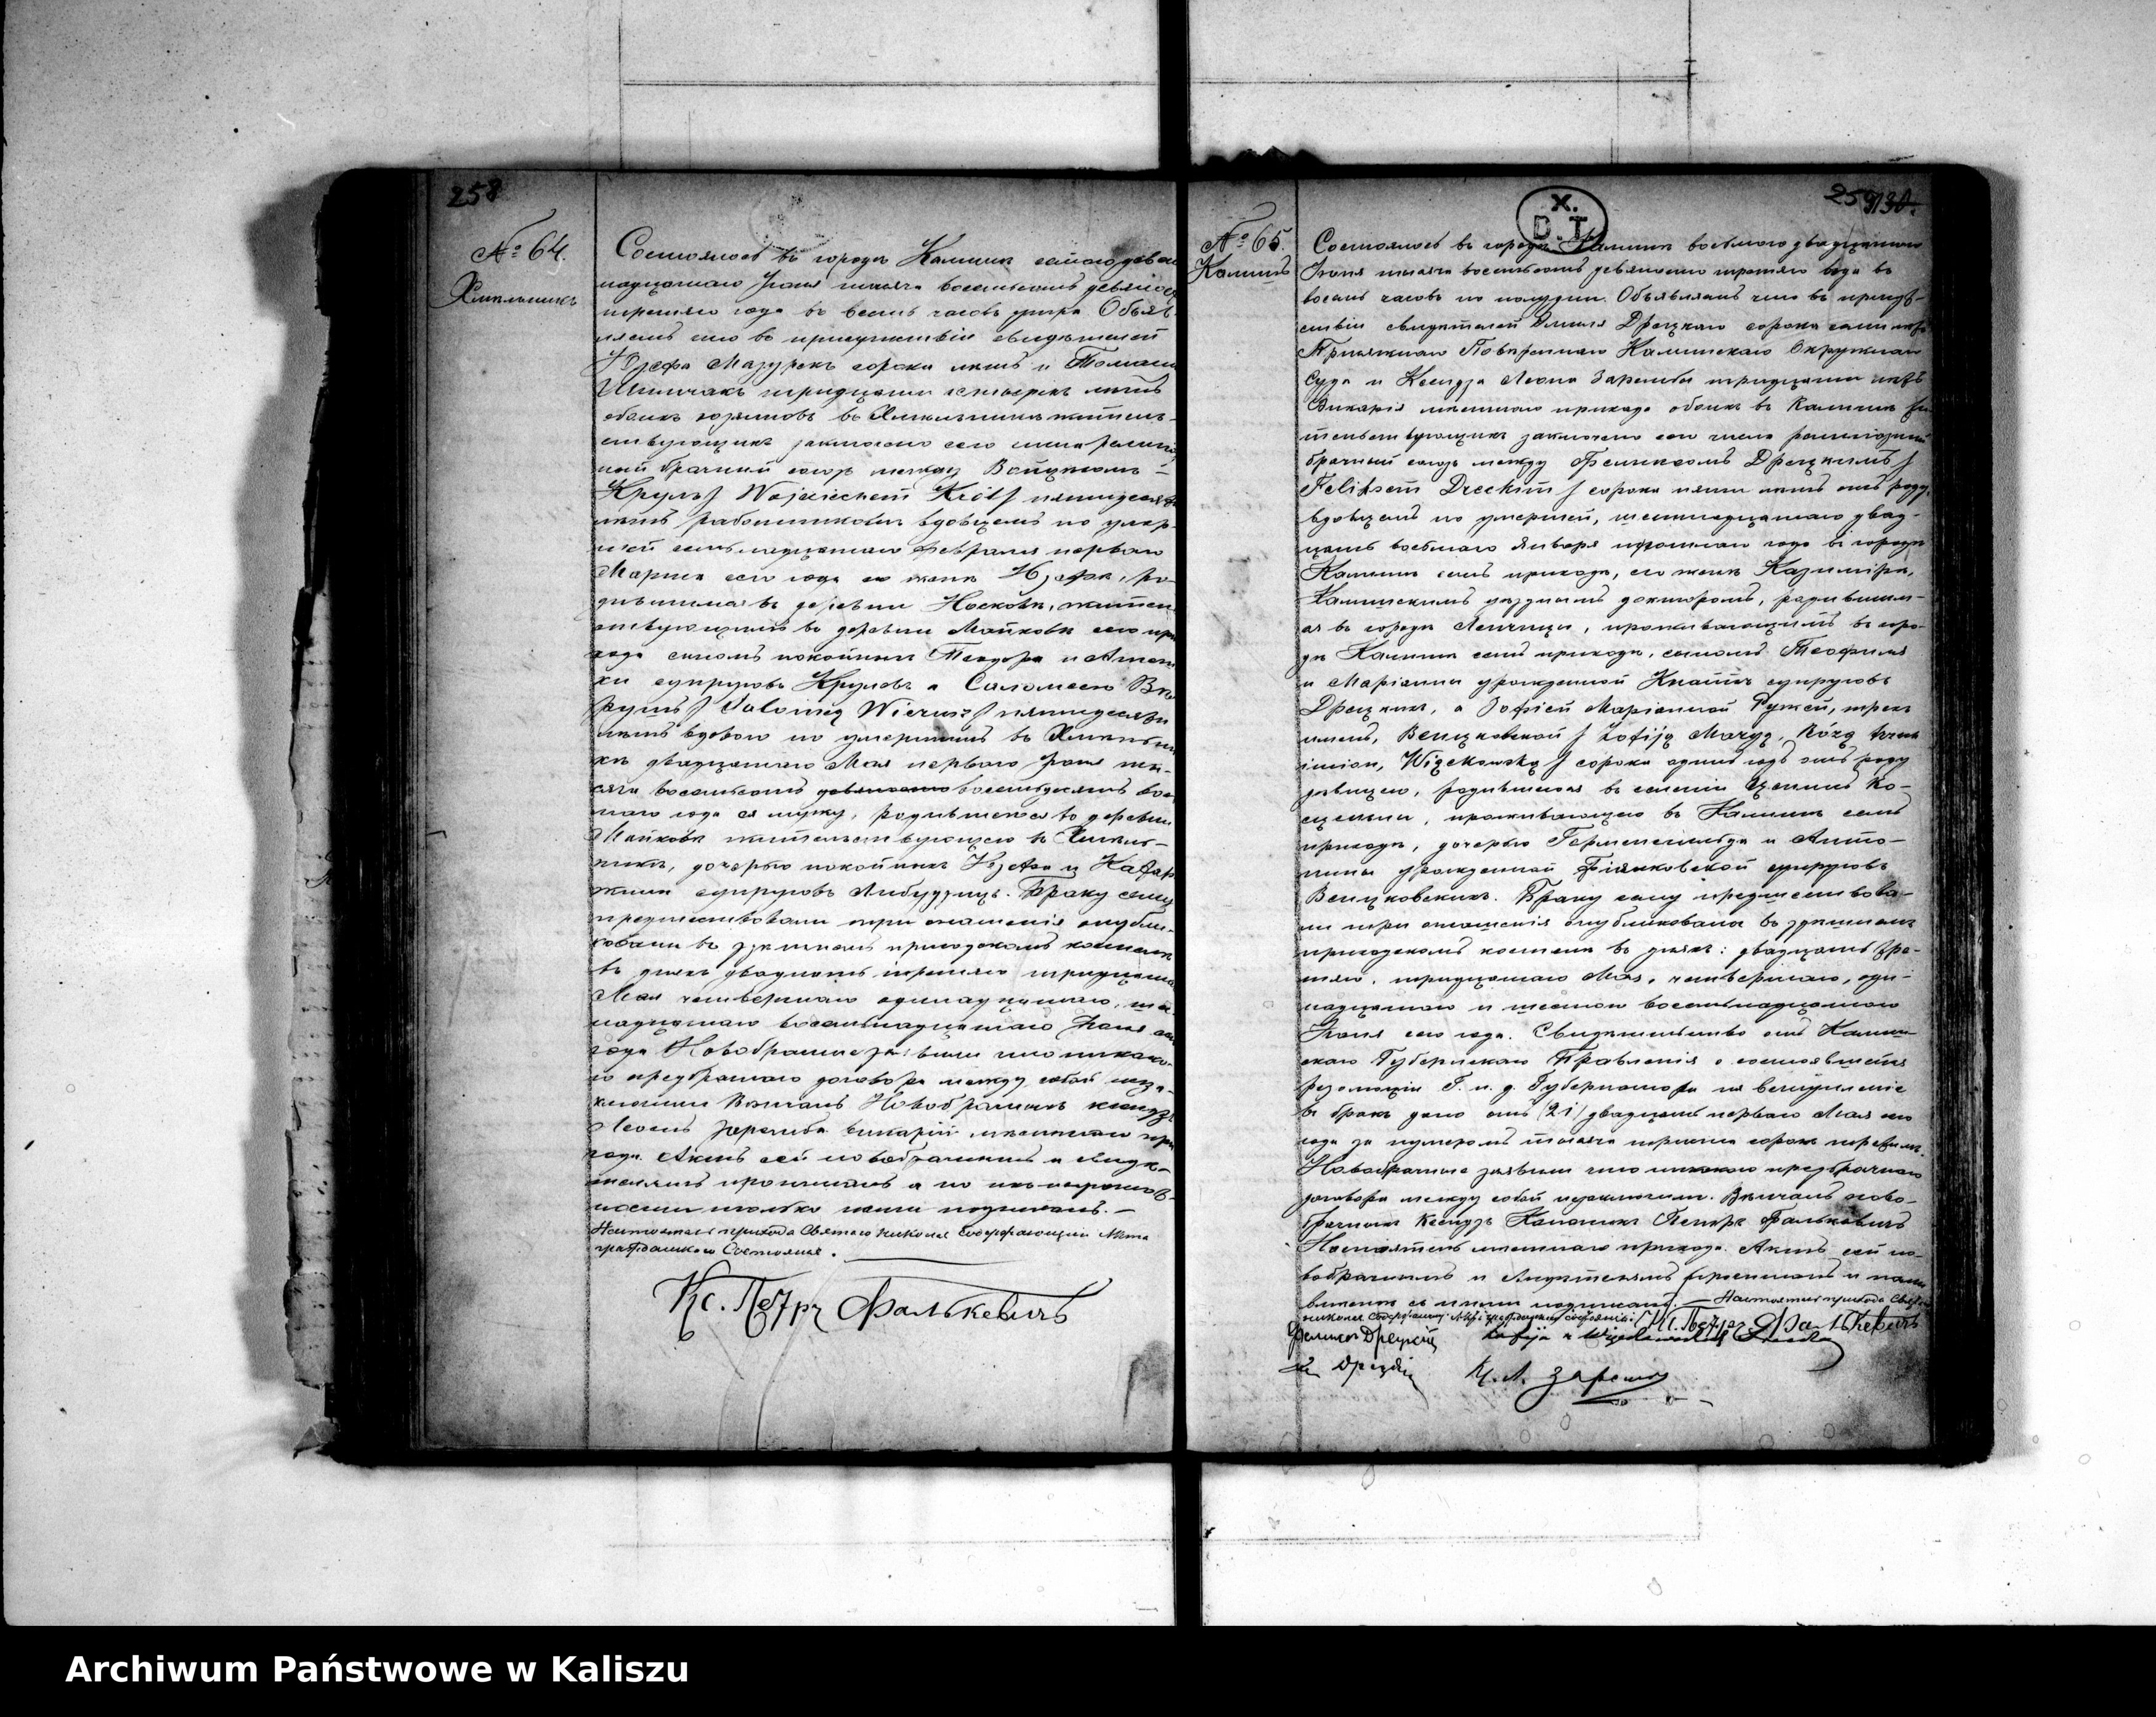 258
№ 64.
Хмельникъ
Состоялось въ городѣ Калишѣ седьмого девят
надцатаго Іюня тысяча восемьсотъ девяносто
третьяго года въ восемь часовъ утра Объяв-
ляемъ что въ присутствіи свидѣтелей
Юзефа Мазурекъ сорока лѣтъ и Томаша
тридцати четырехъ лѣтъ
обоихъ въ Хмельникѣ житель-
ствующихъ заключено сего числа религіоз
ный брачный союзъ между Войцѣхомъ
Круль / Wojciechem Król / пятидесяти
лѣтъ работникомъ вдовцемъ по умер-
шей семьнадцатаго Февраля перваго
Марта сего года его женѣ Юзефѣ, ро-
дившимся въ деревни Носковѣ, житель
ствующимъ въ деревни Майковѣ сего при
хода сыномъ покойныхъ Теодора и
супруговъ Круловъ и Саломеею Вѣ
рушъ / Salomeą Wierusz / пятидесяти
лѣтъ вдовою по умершимъ въ Хмельни
кѣ двадцатаго Мая перваго Іюня ты-
сяча восемьсотъ восемьдесятъ вось
маго года ея мужу, родившеюся въ деревни
Майковѣ жительствующею въ Хмель-
никѣ, дочерью покойныхъ Юзефа и Катар
жины супруговъ Браку сему
предшествовали три оглашенія опубли-
кованы въ здѣшнемъ приходскомъ костелѣ
въ дняхъ двадцать третьяго тридцатаго
Мая четвертаго одинадцатаго, шест
надцатаго восемьнадцатаго Іюня сего
года Новобрачные заявили что никако-
го предбрачнаго договора между собой не за-
ключили Вѣнчалъ Новобрачныхъ ксендзъ
Леонъ Заремба викарій мѣстнаго при
хода. Актъ сей новобрачнымъ и свидѣ-
телямъ прочитанъ а по ихъ неграмот-
ности только нами подписанъ. —
Настоятель прихода Святаго Николая Содержающій Акта
гражданскаго Состоянія.
Кс. Петръ Фалькевичъ
X.
D.T
259
130.
№ 65.
Калишъ
Состоялось въ городѣ Калишѣ восьмого двадцатаго
Іюня тысяча восемьсотъ девяносто третьяго года въ
восемь часовъ по полудни. Объявляемъ что въ присут-
ствіи свидѣтелей Эмиля Дрецкаго сорока семи лѣтъ
Присяжнаго Повѣреннаго Калишскаго Окружнаго
Суда и Ксендза Леона Заремби тридцати лѣтъ
Викарія мѣстнаго прихода обоихъ въ Калишѣ жи
тельствующихъ заключено сего числа религіозный
брачный союзъ между Феликсомъ Дрецкимъ /
Feliksem Dreckim / сорока пяти лѣтъ отъ роду,
вдовцемъ по умершей, шестнадцатаго двад-
цать восьмаго Января прошлаго года въ городѣ
Калишѣ семъ приходѣ, его женѣ Казимірѣ,
Калишскимъ уѣзднымъ докторомъ, родившим-
ся въ городѣ Ленчицы, проживающимъ въ горо-
дѣ Калишѣ семъ приходѣ, сыномъ Теофиля
и Маріанны урожденной супруговъ
Дрецкихъ, а Зофіей Маріанной Ружей, трехъ
именъ, Венцковской / Zofiją Maryą, Różą trzech
imion, Więckowską / сорока одинъ годъ отъ роду
дѣвицею, родившеюся въ селеніи Ко-
сцельни, проживающею въ Калишѣ семъ
приходѣ, дочерью Герменегильда и Анто-
нины урожденной Фіалковской супруговъ
Венцковскихъ. Браку сему предшествова-
ли три оглашенія опубликованы въ здѣшнемъ
приходскомъ костелѣ въ дняхъ: двадцать тре-
тьяго, тридцатаго Мая, четвертаго, оди-
надцатаго и шестого восемьнадцатаго
Іюня сего года. Свидѣтельство отъ Калиш-
скаго Губернскаго Правленія о состоявшейся
резолюціи Г. и. д. Губернатора на вступленіе
въ бракъ дано отъ (21) двадцать перваго Мая сего
года за нумеромъ тысяча триста сорокъ первымъ.
Новобрачные заявили что никакого предбрачнаго
договора между собой не заключили. Вѣнчалъ ново-
брачныхъ Ксендзъ Каноникъ Петръ Фальковичъ
Настоятель мѣстнаго прихода. Актъ сей но-
вобрачнымъ и свидѣтелямъ прочитанъ и нами
вмѣстѣ съ ними подписанъ. — Настоятель прихода Святаго
Николая Содержающій Акта гражданскаго состоянія: Кс. Петръ Фалькевичъ
Феликсъ Дрецкій Zofija z Więckowskich Drecka
Эм Дрецкій К. Л. Заремба
Archiwum Państwowe w Kaliszu